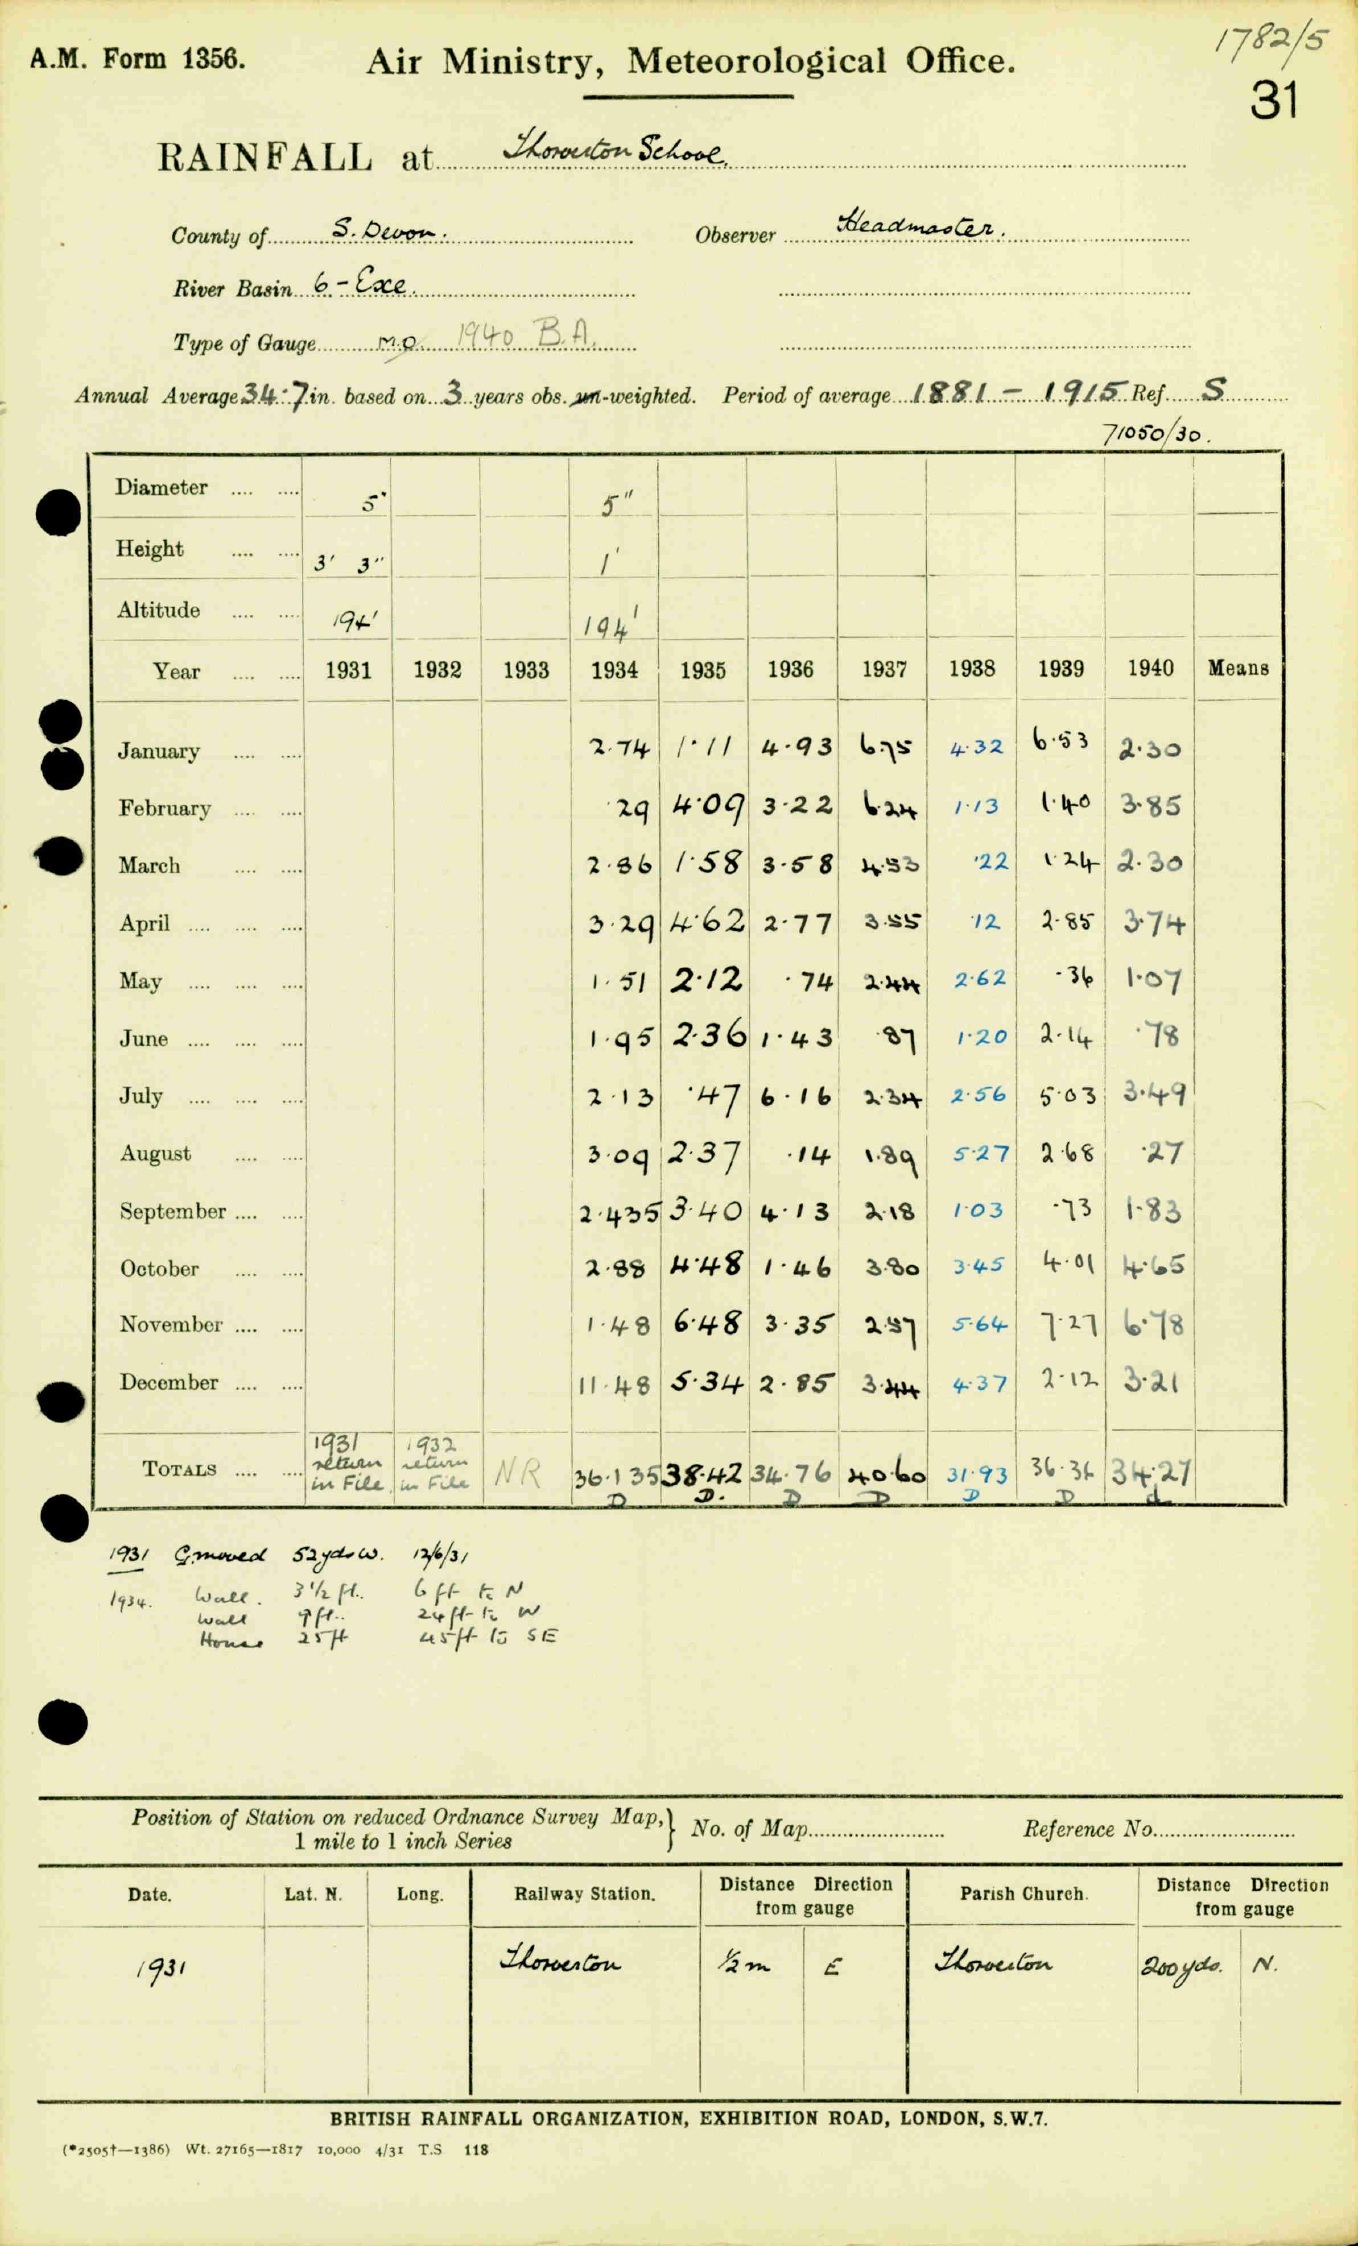 1782/5
A.M. Form 1356. Air Ministry, Meteorological Office.
31
RAINFALL at Thorverton School.
County of S. Devon. Observer Headmaster.
River Basin 6 - Exe.
Type of Gauge M.O. 1940 B.A.
Annual Average 34·7 in. based on 3 years obs. un-weighted. Period of average 1881 - 1915 Ref. S
71050/30.
Diameter 5" 5"
Height 3' 3" 1'
Altitude 194' 194'
Year 1931 1932 1933 1934 1935 1936 1937 1938 1939 1940 Means
January 2·74 1·11 4·93 6·75 4·32 6·53 2·30
February ·29 4·09 3·22 6·24 1·13 1·40 3·85
March 2·86 1·58 3·58 4·53 ·22 1·24 2·30
April 3·29 4·62 2·77 3·55 ·12 2·85 3·74
May 1·51 2·12 ·74 2·44 2·62 ·36 1·07
June 1·95 2·36 1·43 ·87 1·20 2·14 ·78
July 2·13 ·47 6·16 2·34 2·56 5·03 3·49
August 3·09 2·37 ·14 1·89 5·27 2·68 ·27
September 2·435 3·40 4·13 2·18 1·03 ·73 1·83
October 2·88 4·48 1·46 3·80 3·45 4·01 4·65
November 1·48 6·48 3·35 2·57 5·64 7·27 6·78
December 11·48 5·34 2·85 3·44 4·37 2·12 3·21
1931 1932
TOTALS return return NR 36·135 38·42 34·76 40·60 31·93 36·36 34·27
in File. in File D D. D D D D d
1931 G. moved 52 yds W. 12/6/31
1934. Wall. 3½ ft. 6 ft to N
Wall 9 ft. 24 ft to W
House 25 ft 45 ft to SE
Position of Station on reduced Ordnance Survey Map, } No. of Map Reference No.
1 mile to 1 inch Series
Date. Lat. N. Long. Railway Station. Distance Direction from gauge Parish Church. Distance Direction from gauge
1931 Thorverton ½ m E Thorverton 200 yds. N.
BRITISH RAINFALL ORGANIZATION, EXHIBITION ROAD, LONDON, S.W.7.
(*2505†—1386) Wt. 27165—1817 10,000 4/31 T.S 118